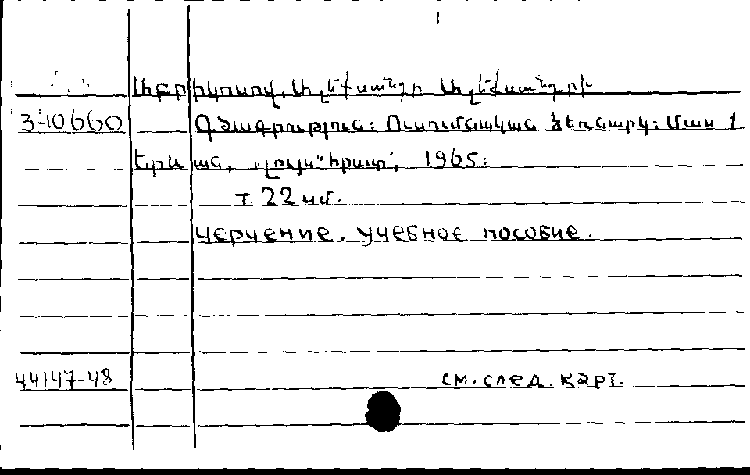 Աբրիկոսով, Ալեքսանդր Ալեքսանդրի
340660 Գծագրություն: Ուսումնական ձեռնարկ: Մաս 1
Երևան, "Լույս" հրատ, 1965:
т. 22 սմ.
Черчение. Учебное пособие.
44147-48 См. след. карт.